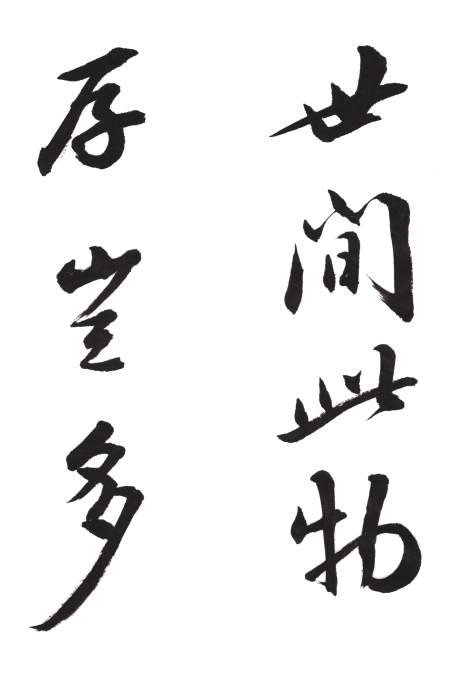 世間此物
存豈多